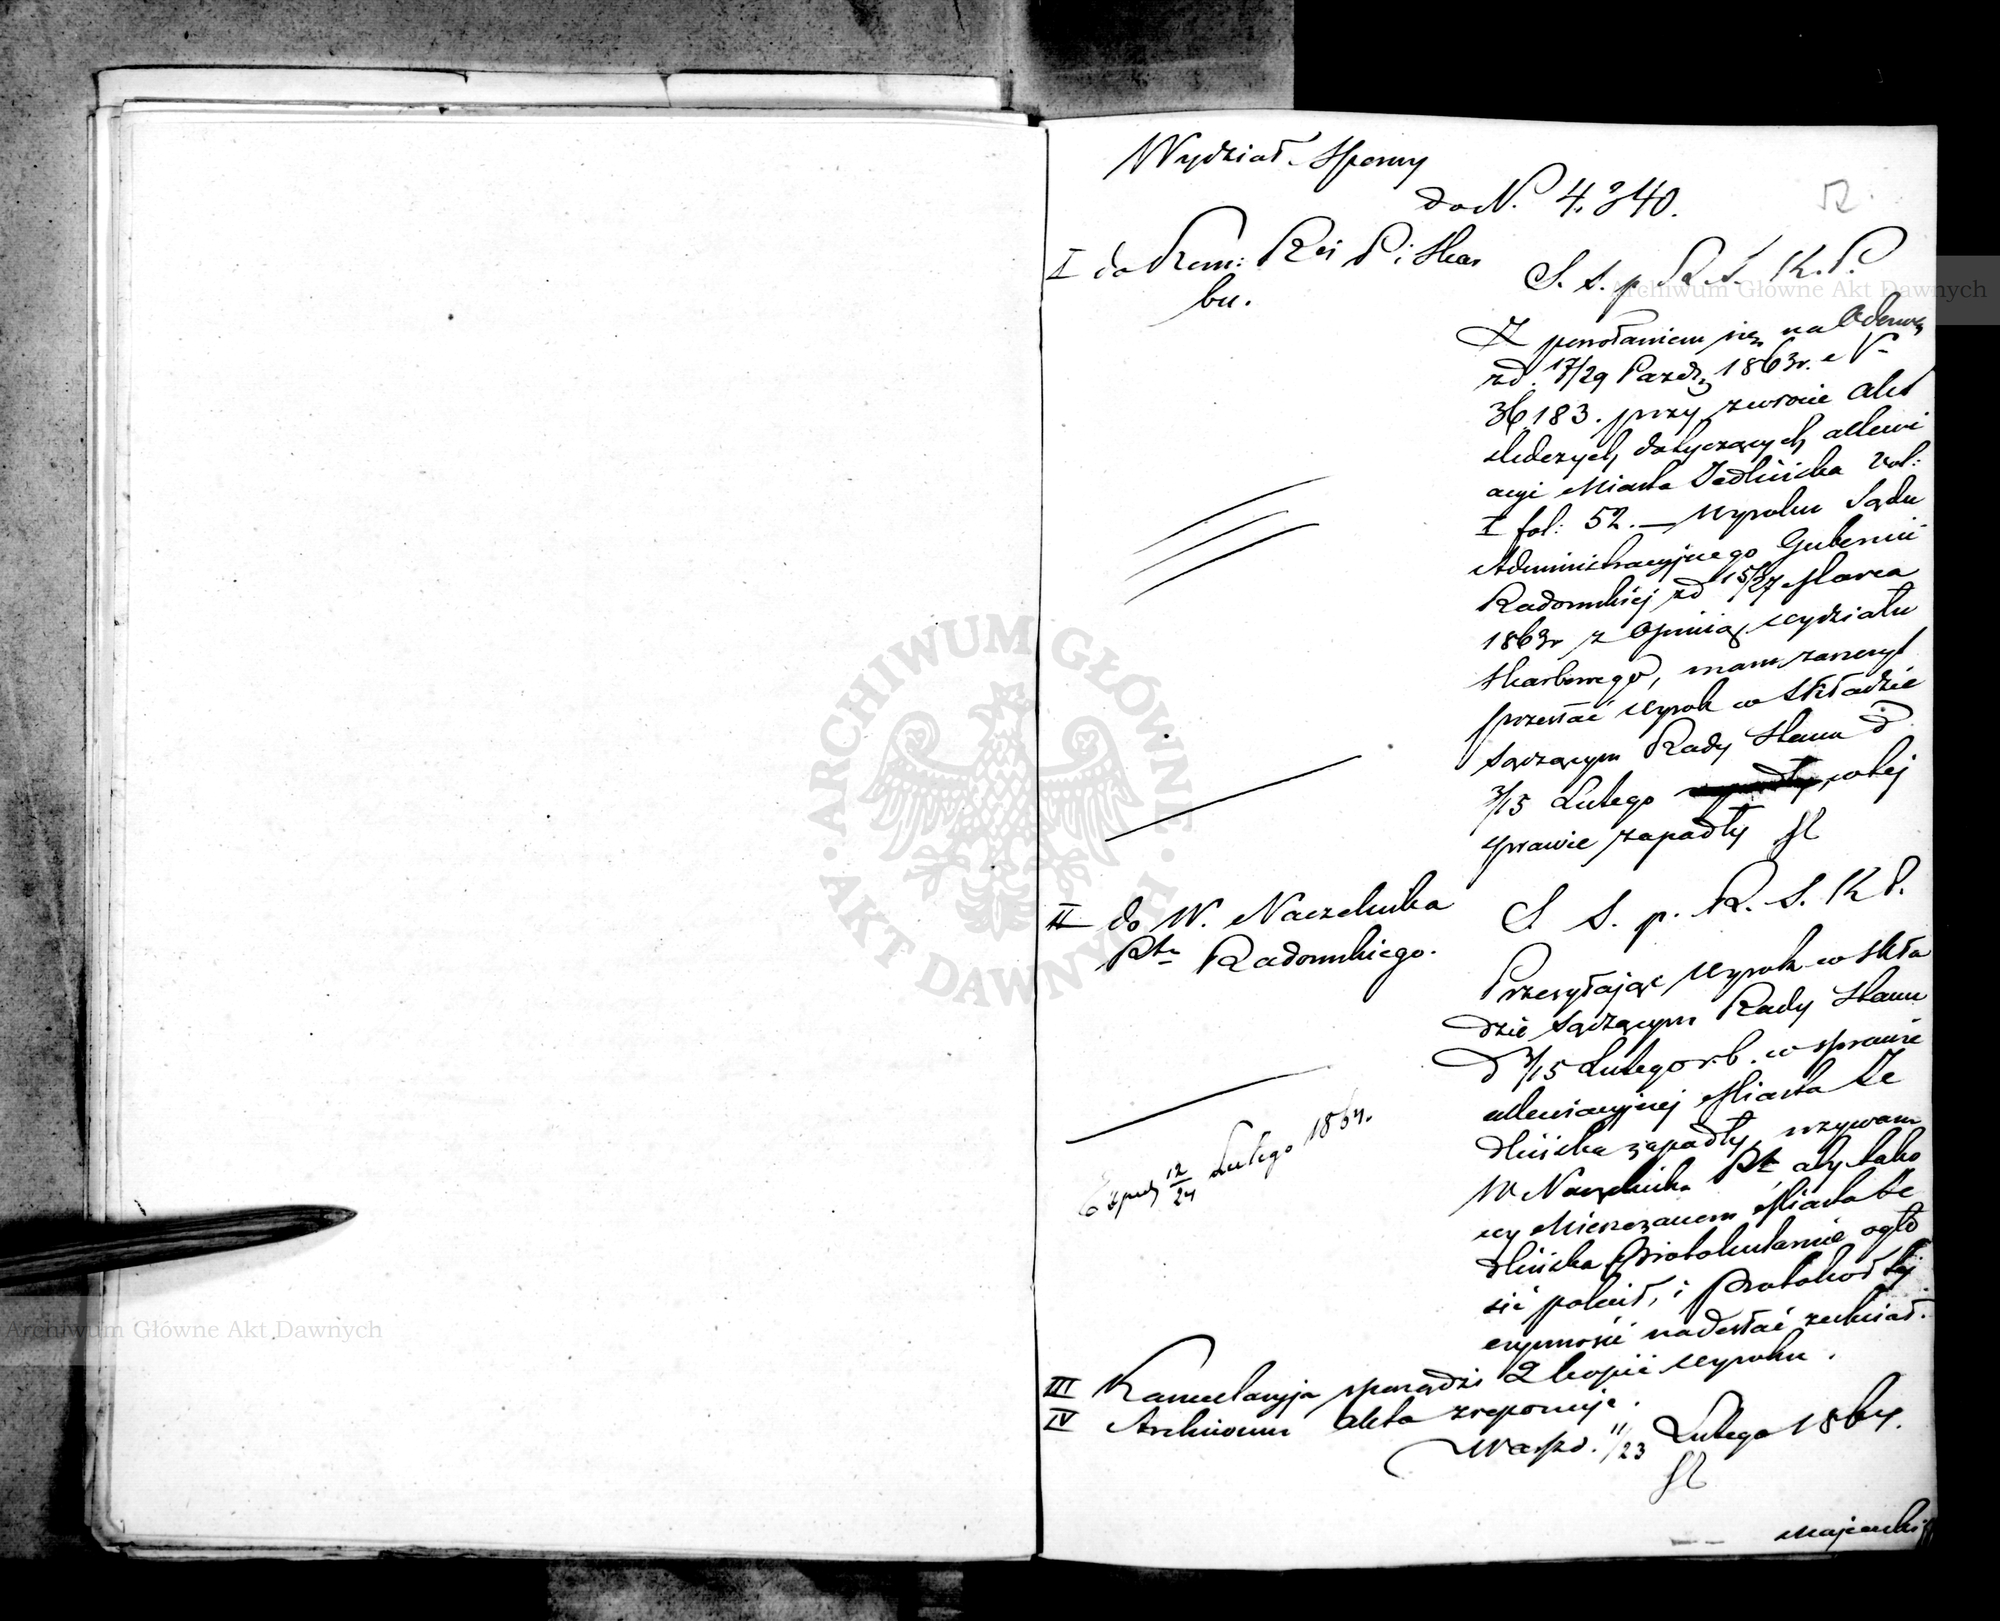 Wydział Sporny
do N. 4.340.
52.
I do Kom: Rz. i P. i Skar
bu.
S. s. p. R. S. K. P.
Z powołaniem się na Odezwę
z d. 17/29 Paźdz. 1863r. N
36,183. przy zwrocie akt
śledczych dotyczących allewi
acyi Miasta Jedlińska vol:
I fol: 52. — wyroku Sądu
Administracyjnego Gubernii
Radomskiej z d 15/27 Marca
1863r z Opinią wydziału
Skarbowego, mam zaszczyt
przesłać wyrok w Składzie
Sądzącym Rady Stanu d
3/15 Lutego w tej
sprawie zapadły
II do W. Naczelnika
Ptu Radomskiego.
S S. p. R. S. K P.
Przesyłając wyrok w Skła
dzie Sądzącym Rady Stanu
d 3/15 Lutego r. b. w sprawie
allewiacyjnej Miasta Je
dlińska zapadły, wzywam
W Naczelnika Ptu aby tako
wy Mieszczanom Miasta Je
dlińska Protokularnie ogło
sić polecił, i protokół tej
czynności nadesłać zechciał.
Exped 12/24 Lutego 1864.
III Kancelaryja sporządzi 2 kopie wyroku.
IV Archiwum akta zreponuje.
Warsz d. 11/23 Lutego 1864.
Majewski
ARCHIWUM GŁÓWNE
AKT DAWNYCH
Archiwum Główne Akt Dawnych
Archiwum Główne Akt Dawnych